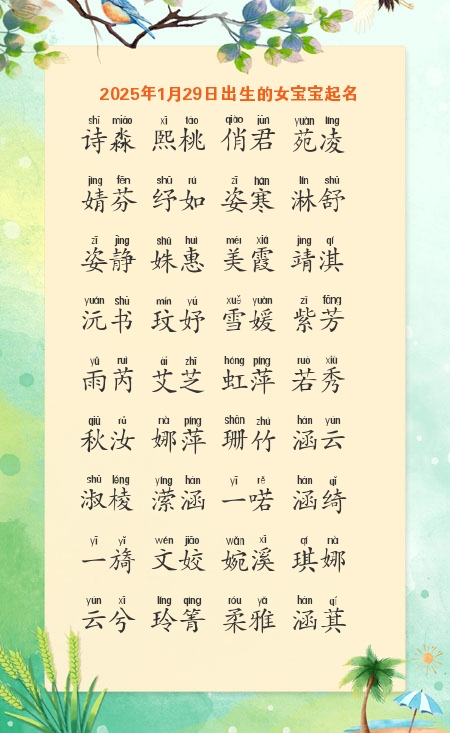 2025年1月29日出生的女宝宝起名
shī miǎo xī táo qiào jūn yuàn líng
诗淼 熙桃 俏君 苑凌
jìng fēn shū rú zī hán lín shū
婧芬 纾如 姿寒 淋舒
zī jìng shū huì měi xiá jìng qí
姿静 姝惠 美霞 靖淇
yuán shū mín yú xuě yuàn zǐ fāng
沅书 玟妤 雪媛 紫芳
yǔ ruì ài zhī hóng píng ruò xiù
雨芮 艾芝 虹萍 若秀
qiū rǔ nà píng shān zhú hán yún
秋汝 娜萍 珊竹 涵云
shū léng yíng hán yī rě hán qǐ
淑棱 潆涵 一喏 涵绮
yī yǐ wén jiāo wǎn xī qí nà
一旖 文姣 婉溪 琪娜
yún xī líng qìng róu yǎ hán qí
云兮 玲箐 柔雅 涵萁